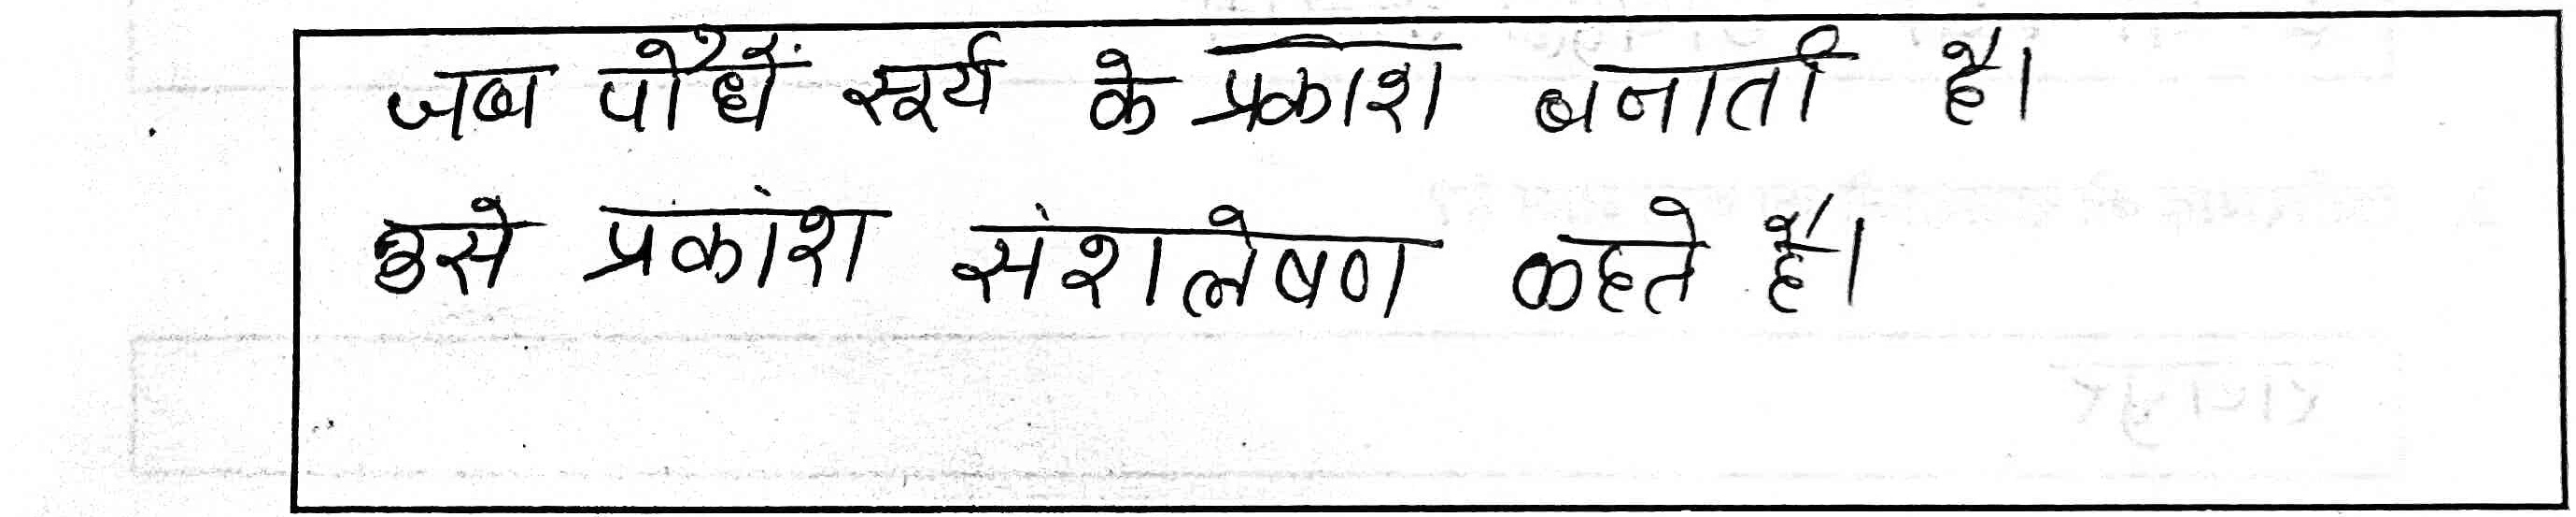 जब पौधें सूर्य के प्रकाश बनाती है।
उसे प्रकांश संशलेषण कहते है।